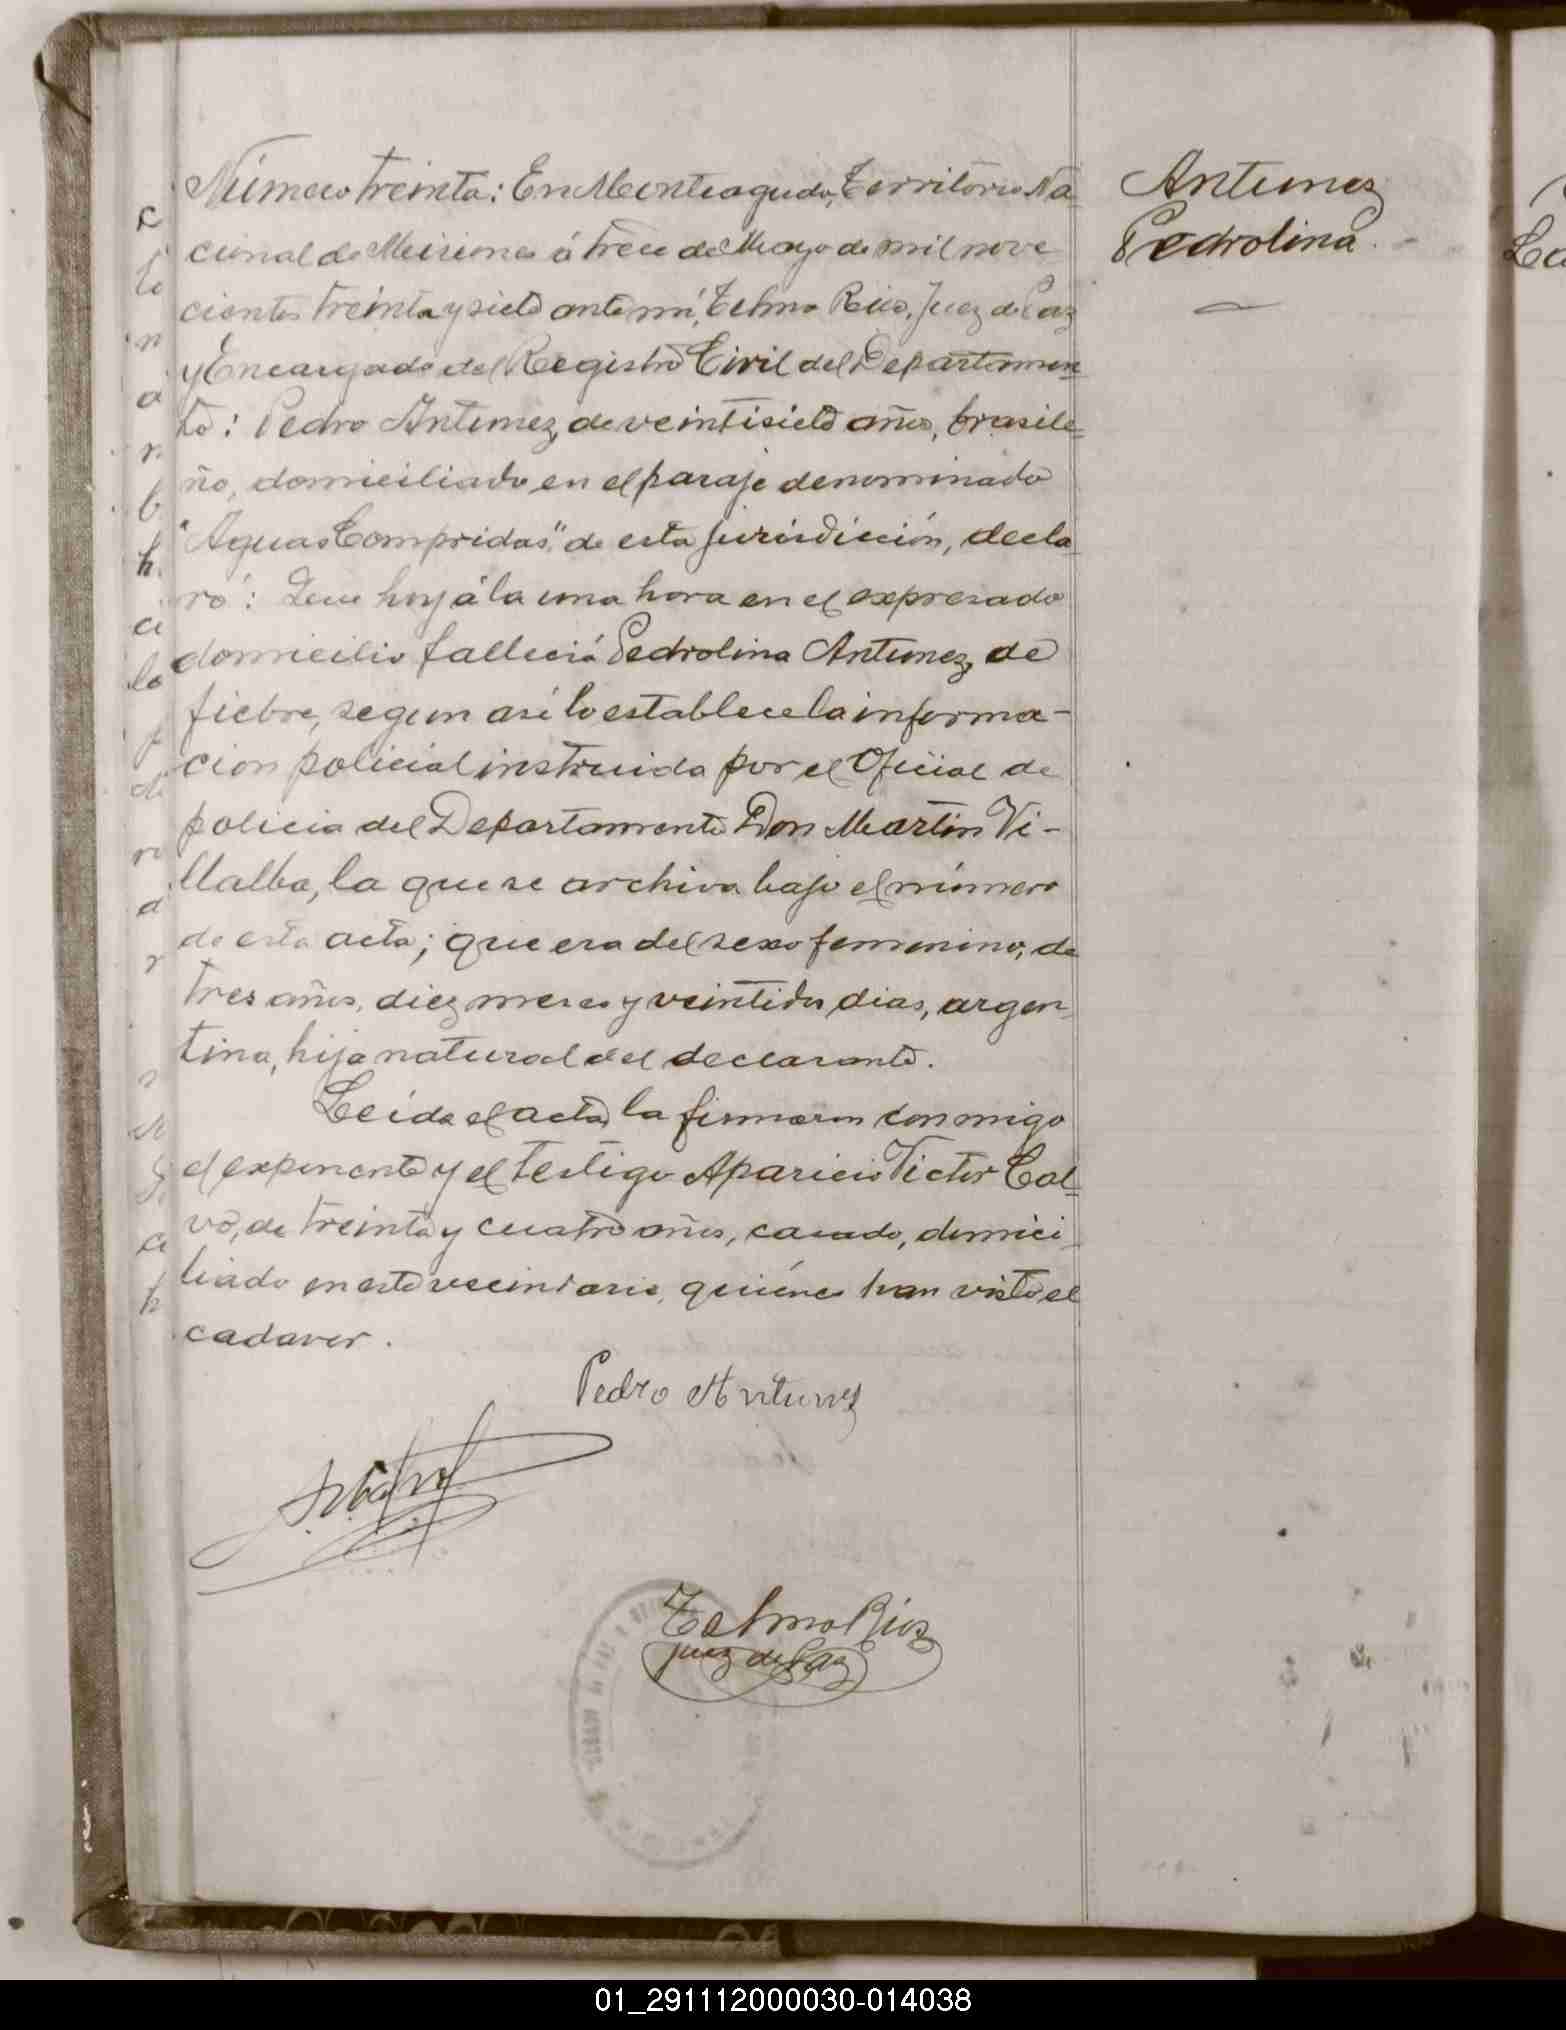 Número treinta: En Monteagudo, Territorio Na-
cional de Misiones á trece de Mayo de mil nove
cientos treinta y siete ante mí, Telmo Rios, Juez de Paz
y Encargado del Registro Civil del Departamen-
to: Pedro Antunez, de veintisiete años, brasile-
ño, domiciliado en el paraje denominado
"Aguas Compridas" de esta jurisdicción, decla-
ró: Que hoy á la una hora en el expresado
domicilio falleció Pedrolina Antunez, de
fiebre, segun así lo establece la informa-
cion policial instruida por el Oficial de
policia del Departamento Don Martin Vi-
llalba, la que se archiva bajo el número
de esta acta; que era del sexo femenino, de
tres años, diez meses y veintidos dias, argen-
tina, hija natural del declarante.
Leida el acta, la firmaron conmigo
el exponente y el testigo Aparicio Victor Cal-
vo, de treinta y cuatro años, casado, domici-
liado en este vecindario, quiénes han visto el
cadaver.
Pedro Antunez
Telmo Rios
Juez de Paz
Antunez
Pedrolina.
01_291112000030-014038